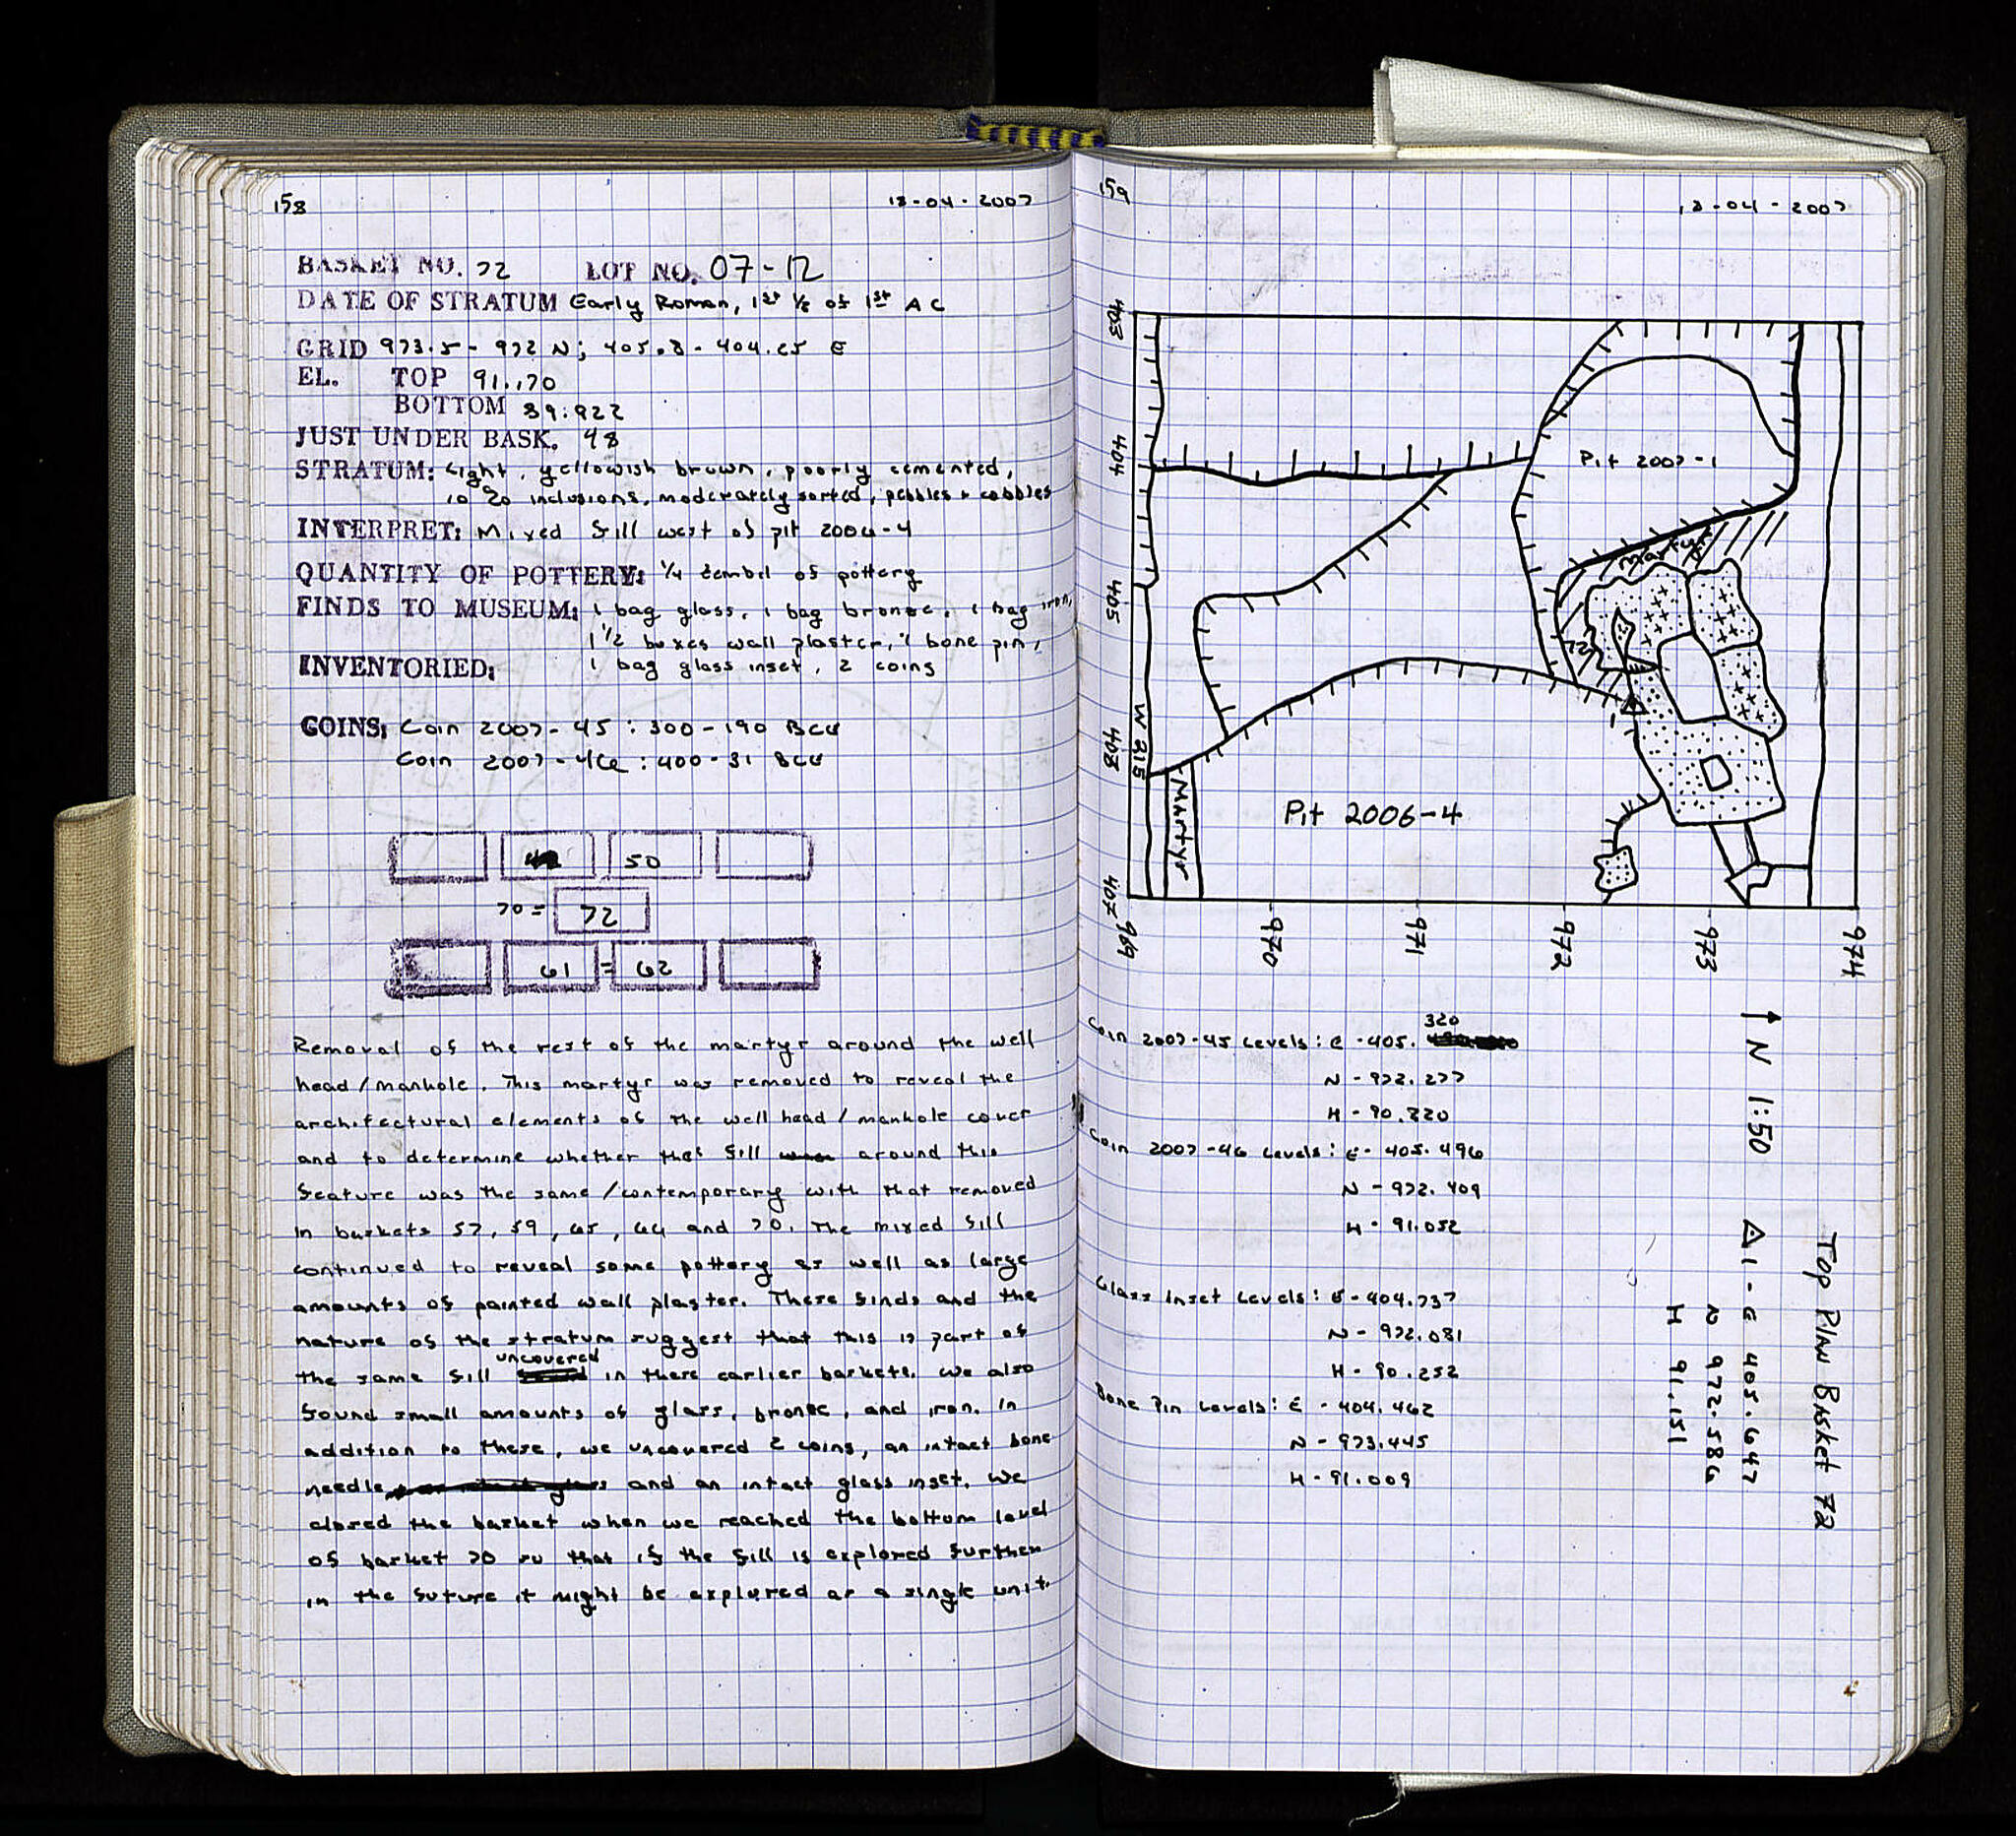 158
18-04-2007
BASKET NO. 72 LOT NO. 07-12
DATE OF STRATUM Early Roman, 1st ½ of 1st AC
GRID 973.5 - 972 N; 405.8 - 404.25 E
EL. TOP 91.170
BOTTOM 89.922
JUST UNDER BASK. 48
STRATUM: Light, yellowish brown, poorly cemented,
10% inclusions, moderately sorted, pebbles + cobbles
INTERPRET: Mixed fill west of pit 2006-4
QUANTITY OF POTTERY: ¼ zembil of pottery
FINDS TO MUSEUM: 1 bag glass, 1 bag bronze, 1 bag iron,
1 ½ boxes wall plaster, 1 bone pin,
INVENTORIED: 1 bag glass inset, 2 coins
COINS: Coin 2007-45 : 300-190 BCE
Coin 2007-46 : 400-31 BCE
50
70 = 72
61 = 62
Removal of the rest of the martyr around the well
head/manhole. This martyr was removed to reveal the
architectural elements of the well head/manhole cover
and to determine whether the fill around this
feature was the same/contemporary with that removed
in baskets 57, 59, 65, 64 and 70. The mixed fill
continued to reveal some pottery as well as large
amounts of painted wall plaster. These finds and the
nature of the stratum suggest that this is part of
the same fill uncovered in these earlier baskets. We also
found small amounts of glass, bronze, and iron. In
addition to these, we uncovered 2 coins, an intact bone
needle and an intact glass inset. We
closed the basket when we reached the bottom level
of basket 70 so that if the fill is explored further
in the future it might be explored as a single unit.
159
18-04-2007
403
404
405
406
407
969
970
971
972
973
974
Pit 2007-1
Martyr
72
1
W 215
Martyr
Pit 2006-4
↑ N 1:50
Top Plan Basket 72
△1 - E 405.647
N 972.586
H 91.151
Coin 2007-45 Levels: E - 405.320
N - 972.277
H - 90.820
Coin 2007-46 Levels: E - 405.496
N - 972.409
H - 91.052
Glass Inset Levels: E - 404.737
N - 972.081
H - 90.252
Bone Pin Levels: E - 404.462
N - 973.445
H - 91.009